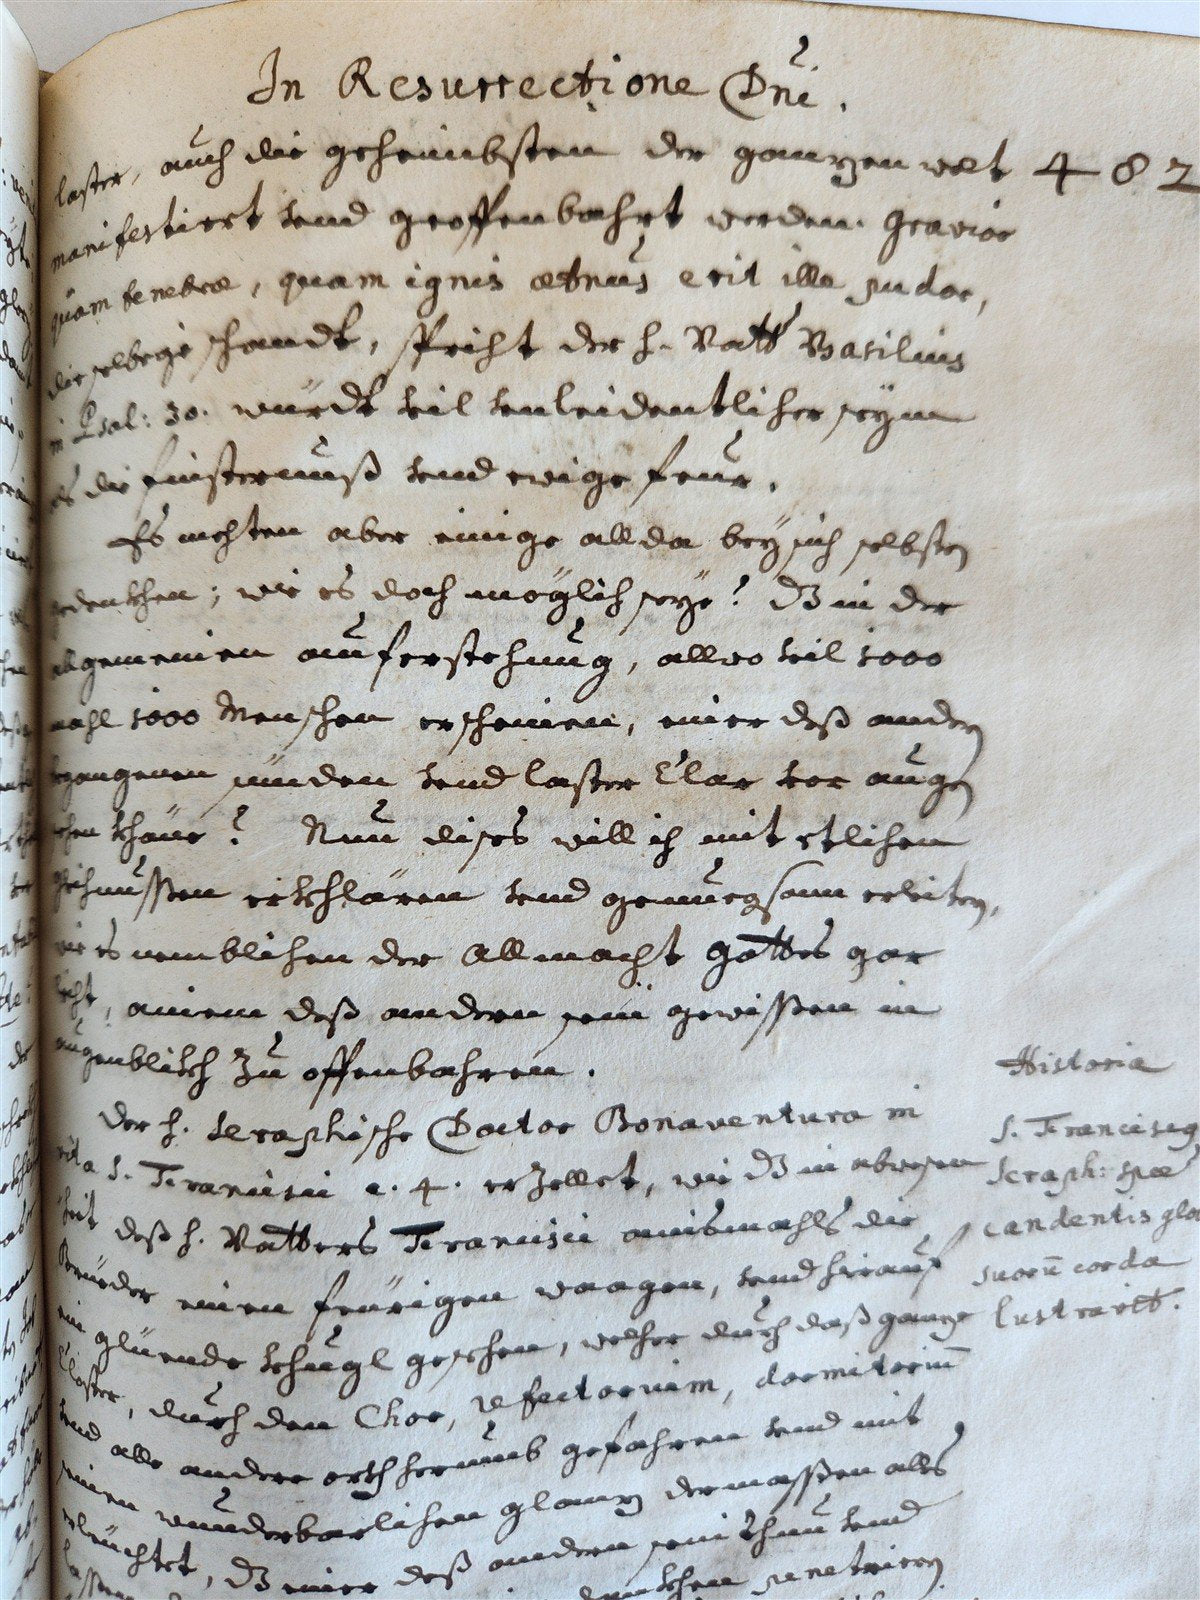 In Resurrectione Dñi.
482
laster, auch die geheimbsten der ganzen welt
manifestiert vnd geoffenbahrt werden. Gravior
quam tenebræ, quam ignis æternus erit ille pudor,
die selbege schandt, spricht der h. Vatter Basilius
in Psal: 30. würdt vil vnleidentlicher seyn
als die finsternuß vnd ewige feur.
Es mechten aber einige allda bey sich selbsten
gedenckhen; wie es doch möglich seye? dz in der
allgemeinen aufferstehung, allwo vil 1000
mahl 1000 Menschen erscheinen, einer deß andern
begangenen sünden vnd laster klar vor augen
sehen khöne? Nun dises will ich mit etlichen
gleichnussen erkhlären vnd genuegsam erleiten,
wie es nemblichen der Allmacht Gottes gar
leicht, ainem deß andern sein gewissen in
augenblickh zu offenbahren.
Der h. Seraphische Doctor Bonaventura in
vita S. Francisci c. 4. erzellet, wie dz in abwesen
heit deß h. Vatters Francisci ainsmahls die
Brüeder einen feürigen waagen, vnd hierauf
ein glüende khugl gesehen, welcher durch daß ganze
Closter, durch den Chor, refectorium, dormitoriū
vnd alle andere orth herumb gefahren vnd mit
seinen wunderbarlichen glanz dermassen alles
erleuchtet, dz einer deß andern sein thun vnd
lassen penetrieren
Historia
S. Franciscq
Seraph: spæ
candentis glo
suorū corda
lustravit.